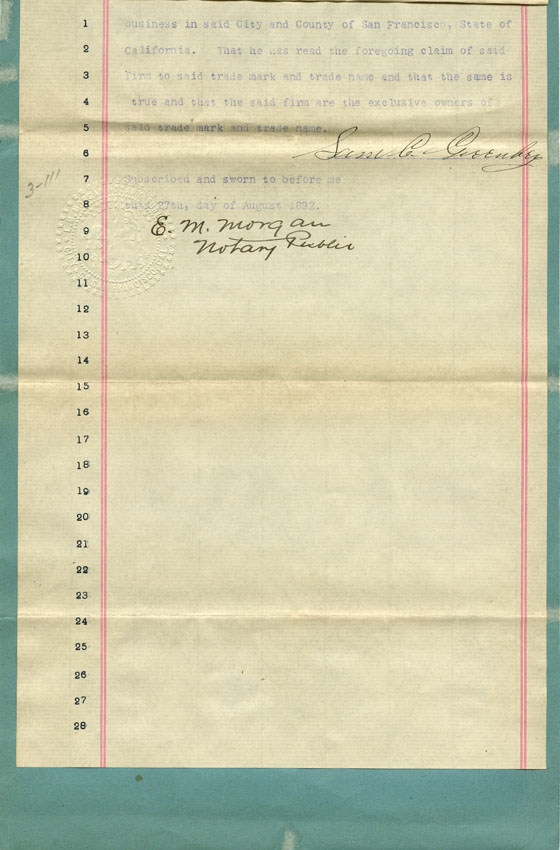 1 business in said City and County of San Francisco, State of
2 California. That he has read the foregoing claim of said
3 firm to said trade mark and trade name and that the same is
4 true and that the said firm are the exclusive owners of
5 said trade mark and trade name.
6 Sam C.
3-111
7 Subscribed and sworn to before me
8 this 27th, day of August 1892.
9 E. M. Morgan
Notary Public
10
11
12
13
14
15
16
17
18
19
20
21
22
23
24
25
26
27
28